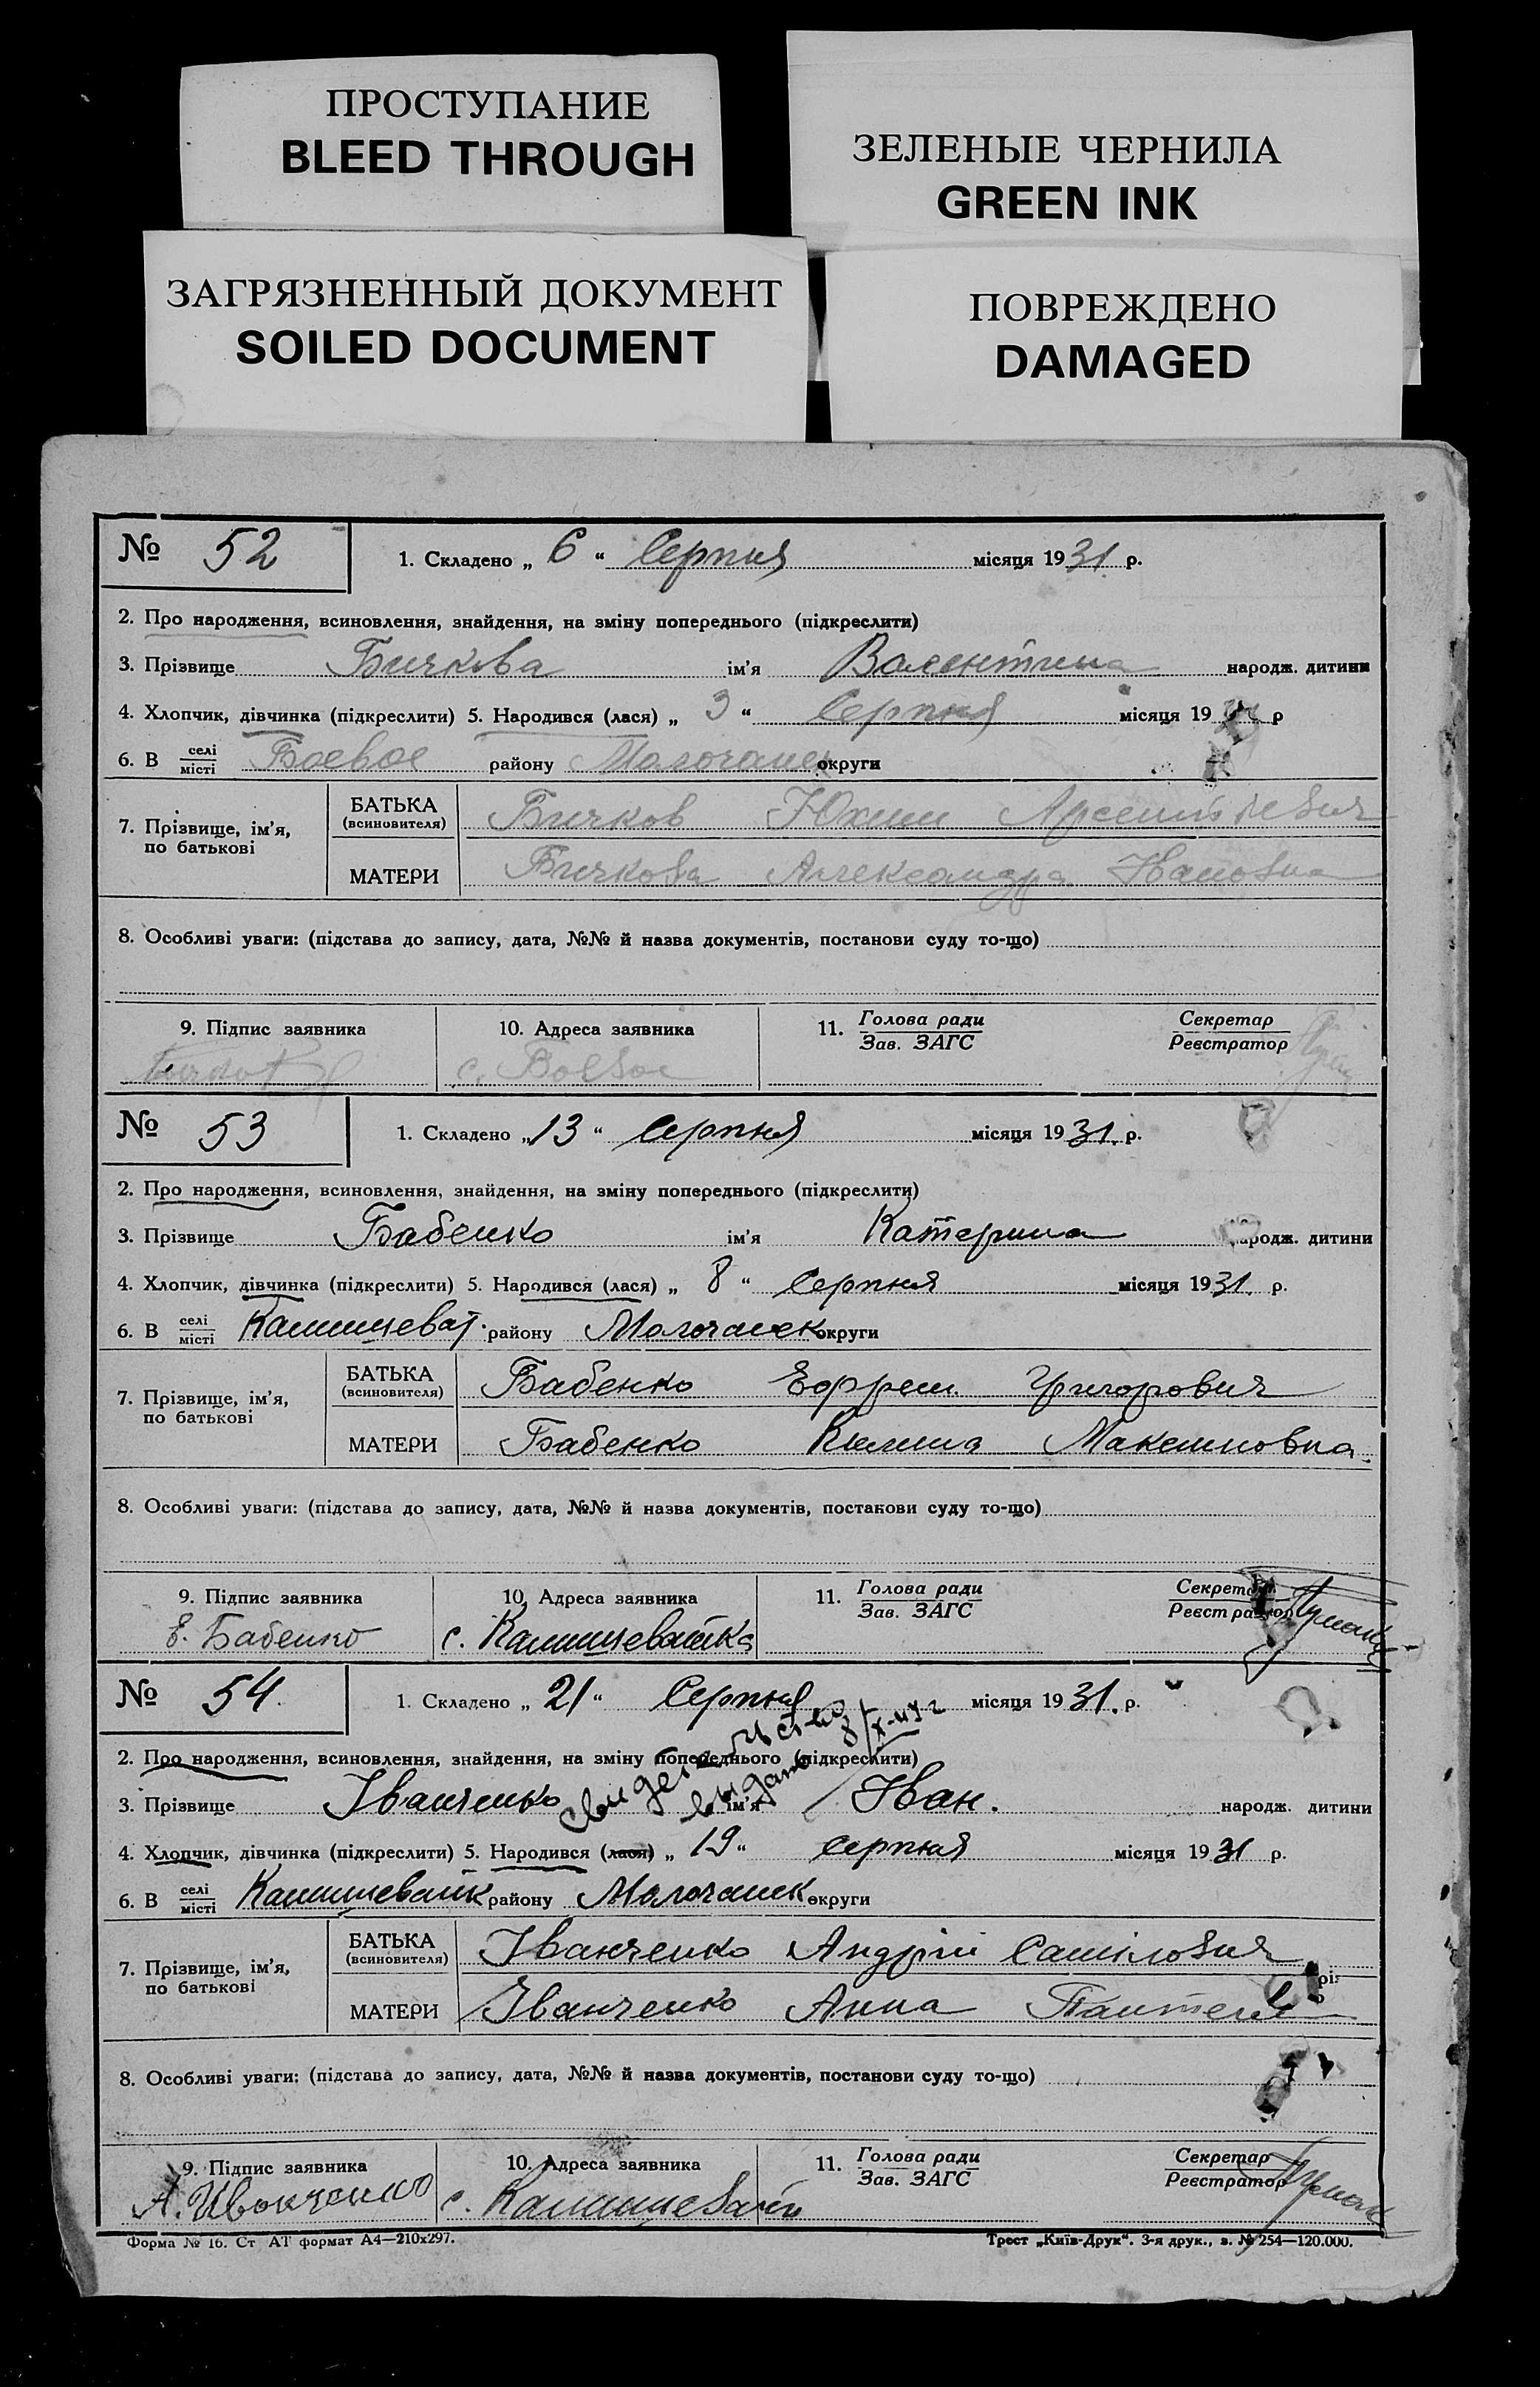 ПРОСТУПАНИЕ
BLEED THROUGH
ЗЕЛЕНЫЕ ЧЕРНИЛА
GREEN INK
ЗАГРЯЗНЕННЫЙ ДОКУМЕНТ
SOILED DOCUMENT
ПОВРЕЖДЕНО
DAMAGED
№ 52 1. Складено „ 6 “ Серпня місяця 1931. р.
2. Про народження, всиновлення, знайдення, на зміну попереднього (підкреслити)
3. Прізвище Бичкова ім'я Валентина народж. дитини
4. Хлопчик, дівчинка (підкреслити) 5. Народився (лася) „ 3 “ Серпня місяця 19 р
6. В селі місті Боевое району Молочанск округи
7. Прізвище, ім'я, по батькові
БАТЬКА (всиновителя) Бичков Юхим
МАТЕРИ Бичкова Александра Ивановна
8. Особливі уваги: (підстава до запису, дата, №№ й назва документів, постанови суду то-що)
9. Підпис заявника 10. Адреса заявника 11. Голова ради Зав. ЗАГС Секретар Реєстратор
с. Боевое
№ 53 1. Складено „ 13 “ Серпня місяця 1931. р.
2. Про народження, всиновлення, знайдення, на зміну попереднього (підкреслити)
3. Прізвище Бабенко ім'я Катерина народж. дитини
4. Хлопчик, дівчинка (підкреслити) 5. Народився (лася) „ 8 “ Серпня місяця 1931. р.
6. В селі місті Камишеват. району Молочанск округи
7. Прізвище, ім'я, по батькові
БАТЬКА (всиновителя) Бабенко Ефрем Григорович
МАТЕРИ Бабенко Максимовна
8. Особливі уваги: (підстава до запису, дата, №№ й назва документів, постанови суду то-що)
9. Підпис заявника 10. Адреса заявника 11. Голова ради Зав. ЗАГС Секретар Реєстратор
Е. Бабенко с. Камишеватка
№ 54. 1. Складено „ 21 “ Серпня місяця 1931. р.
2. Про народження, всиновлення, знайдення, на зміну попереднього (підкреслити)
свидетельство
выдано
3. Прізвище Іванченко ім'я Іван. народж. дитини
4. Хлопчик, дівчинка (підкреслити) 5. Народився (лася) „ 19 “ серпня місяця 1931 р.
6. В селі місті Камишеватк району Молочанск округи
7. Прізвище, ім'я, по батькові
БАТЬКА (всиновителя) Іванченко Андрій
МАТЕРИ Іванченко Анна
8. Особливі уваги: (підстава до запису, дата, №№ й назва документів, постанови суду то-що)
9. Підпис заявника 10. Адреса заявника 11. Голова ради Зав. ЗАГС Секретар Реєстратор
А. Иванченко с. Камишеватк
Форма № 16. Ст АТ формат А4—210х297. Трест „Київ-Друк“. 3-я друк., з. № 254—120.000.